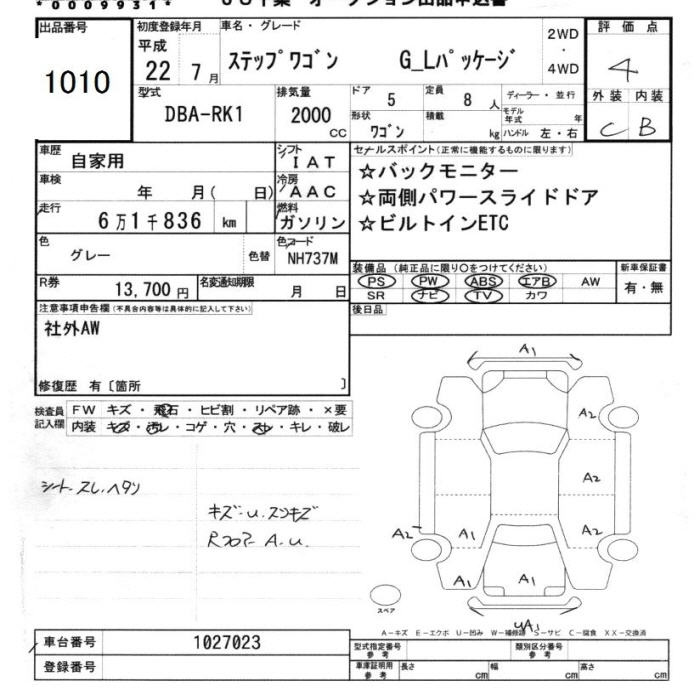 *00099331*
出品番号
1010
初度登録年月
平成
22 7月
車名・グレード
ステップワゴン G_Lパッケージ
2WD
・
4WD
評価点
4
外装 内装
C B
型式
DBA-RK1
排気量
2000
CC
ドア
5
定員
8 人
ディーラー・並行
モデル年式 年
形状
ワゴン
積載
kg
ハンドル 左・右
車歴
自家用
シフト
IAT
車検
年 月( 日)
冷房
AAC
走行
6万1千836 km
燃料
ガソリン
色
グレー
色替
色コード
NH737M
R券
13,700円
名変通知期限
月 日
セールスポイント(正常に機能するものに限ります)
☆バックモニター
☆両側パワースライドドア
☆ビルトインETC
装備品(純正品に限り○をつけてください)
PS PW ABS エアB AW
SR ナビ TV カワ
新車保証書
有・無
後日品
注意事項申告欄(不具合内容等は具体的に記入して下さい)
社外AW
修復歴 有〔箇所 〕
検査員記入欄
FW キズ・飛石・ヒビ割・リペア跡・×要
内装 キズ・汚レ・コゲ・穴・スレ・キレ・破レ
シート スレ、ヘタリ
キズ・u.スリキズ
Rコアー A.u.
A1
A2
A2
A2 A1 A2
A1 A1 A1
スペア
A1
A-キズ E-エクボ U-凹み W-補修跡 S-サビ C-腐食 XX-交換済
車台番号
1027023
登録番号
型式指定番号
参考
類別区分番号
参考
車庫証明用
参考
長さ cm
幅 cm
高さ cm